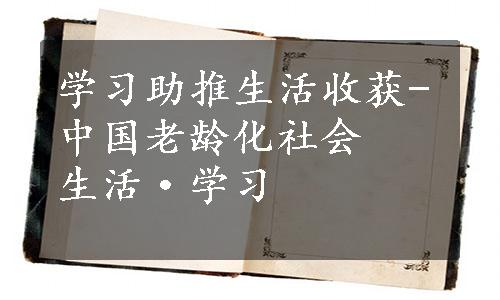 学习助推生活收获-
中国老龄化社会
生活·学习